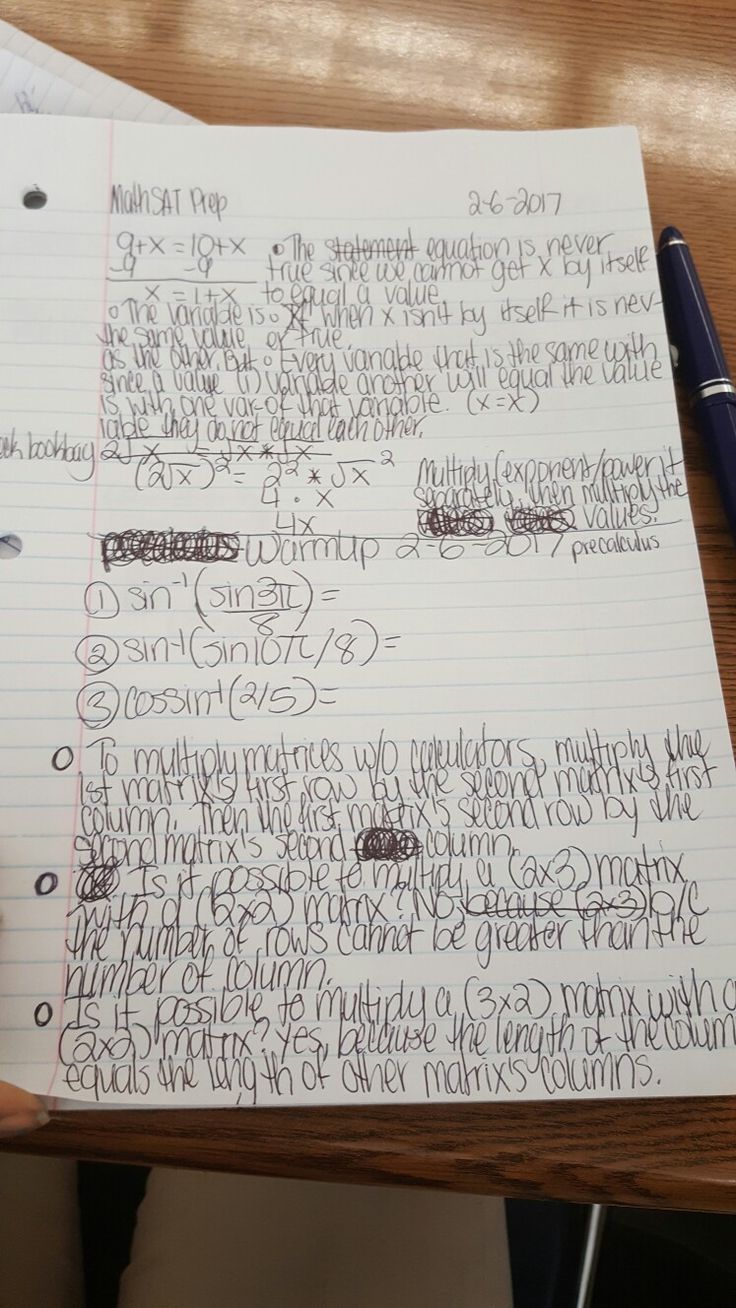 Math SAT Prep 2-6-2017
9+x = 10+x • The statement equation is never
-9 -9 true since we cannot get x by itself
x = 1+x to equal a value
• The variable is • If when x isn't by itself it is nev-
the same value er true.
as the other. But • Every variable that is the same with
since a value (1) variable another will equal the value
is with one var- of that variable. (x=x)
iable they do not equal each other.
bookbag 2√x = √x * √x
(2√x)² = 2² * √x² Multiply (exponent/power) it
4 · x separately, then multiply the
4x values.
Warmup 2-6-2017 precalculus
① sin⁻¹(sin3π/8)=
② sin⁻¹(sin10π/8)=
③ cossin⁻¹(2/5)=
O To multiply matrices w/o calculators, multiply the
1st matrix's first row by the second matrix's first
column. Then the first matrix's second row by the
second matrix's second column.
O Is it possible to multiply a (2x3) matrix
with a (2x2) matrix? No, because (2x3) b/c
the number of rows cannot be greater than the
number of column.
O Is it possible to multiply a (3x2) matrix with a
(2x2) matrix? Yes, because the length of the colum
equals the length of other matrix's columns.